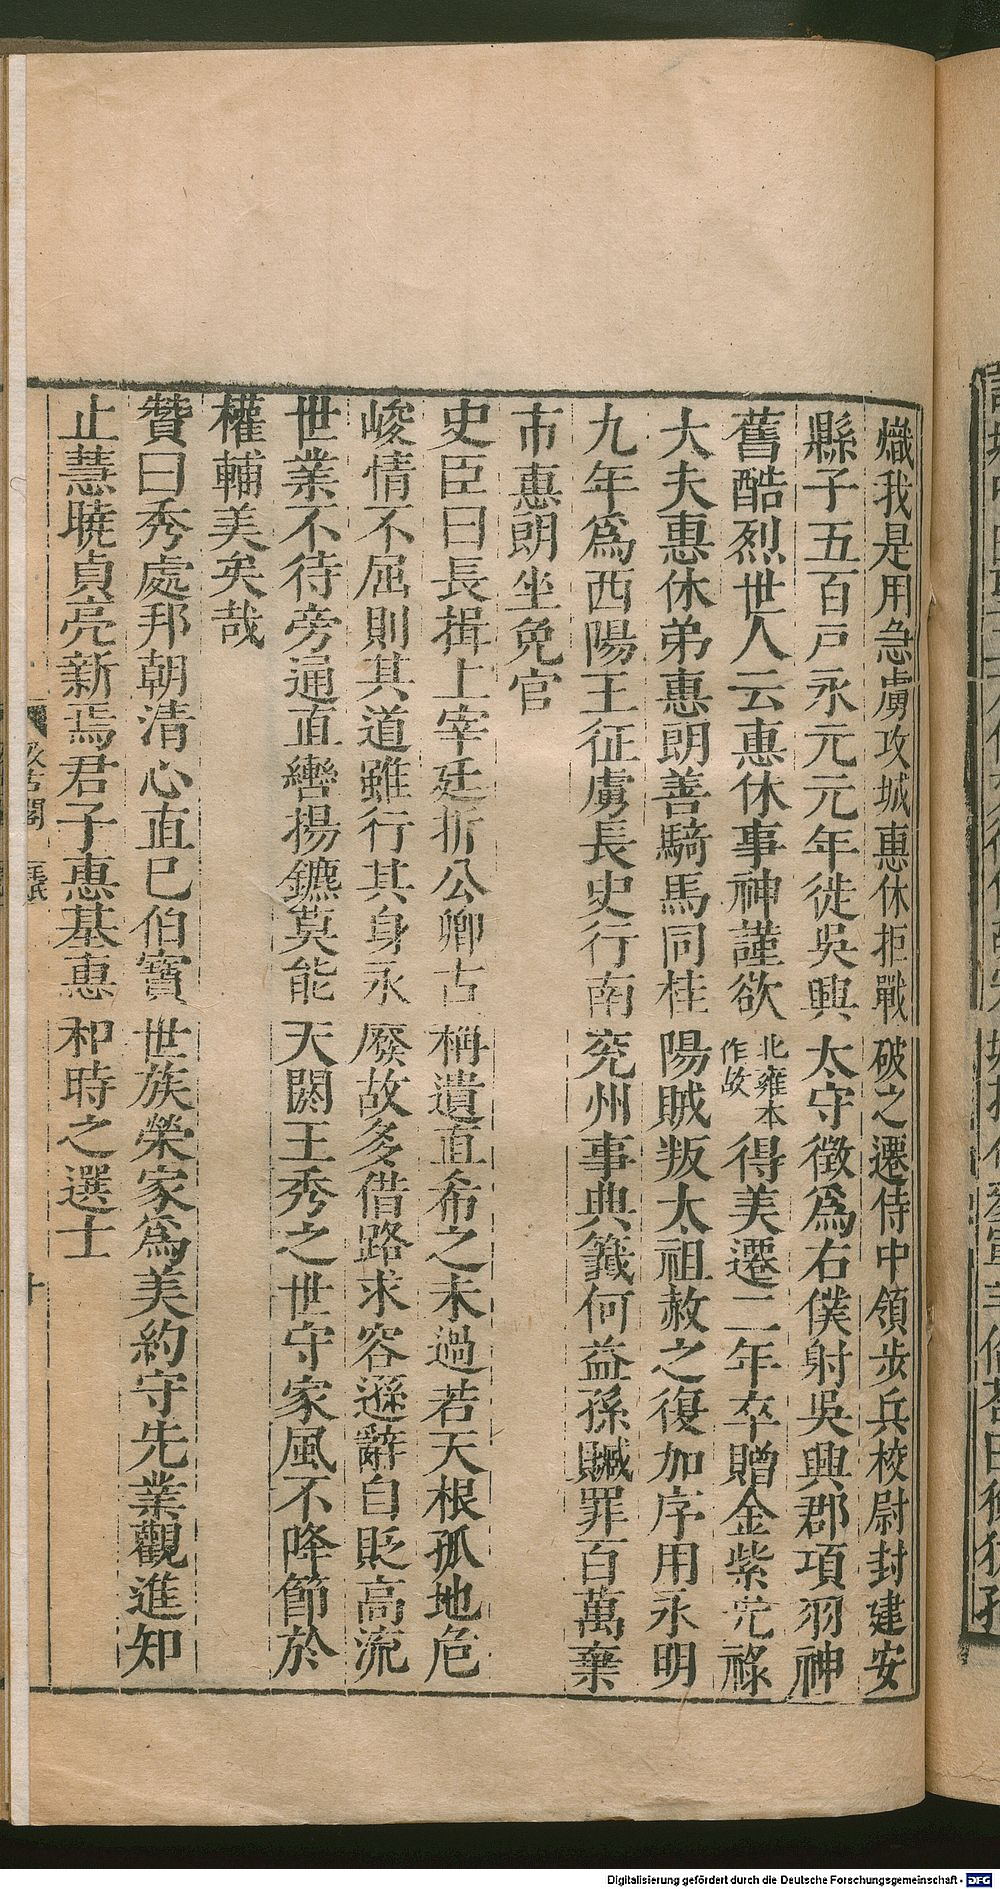 熾我是用急虜攻城惠休拒戰破之遷侍中領步兵校尉封建安
縣子五百戸永元元年徙吳興太守徵爲右僕射吳興郡項羽神
舊酷烈世人云惠休事神謹欲北雍本作故得美遷二年卒贈金紫光祿
大夫惠休弟惠朗善騎馬同桂陽賊叛太祖赦之復加序用永明
九年爲西陽王征虜長史行南兖州事典籤何益孫贓罪百萬棄
市惠朗坐免官
史臣曰長揖上宰廷折公卿古稱遺直希之未過若夫根孤地危
峻情不屈則其道雖行其身永廢故多借路求容遜辭自貶高流
世業不待旁通直轡揚鑣莫能天閼王秀之世守家風不降節於
權輔美矣哉
贊曰秀處邦朝清心直巳伯寶世族榮家爲美約守先業觀進知
止慧曉貞亮斯焉君子惠基惠和時之選士
汲古閣
毛氏
十
Digitalisierung gefördert durch die Deutsche Forschungsgemeinschaft - DFG